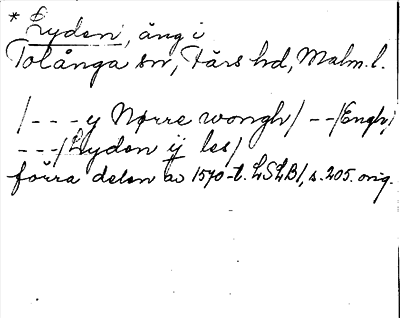 * Lyden, äng i
Tolånga sn, Färs hd, Malm. l.
/ - - - y Nørre wongh/ - - /Engh/
- - - /Lyden ij les/
förra delen av 1570-t. LSLB1, s. 205. orig.